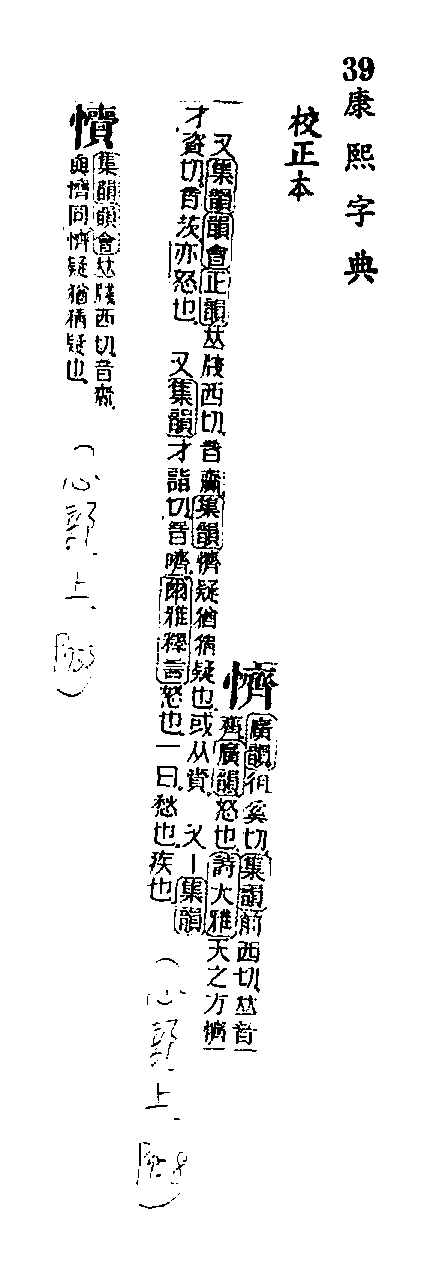 39康熙字典
校正本
懠
廣韻徂奚切集韻前西切𠀤音
齊廣韻怒也詩大雅天之方懠
又集韻韻會正韻𠀤牋西切音齎集韻懠疑猶猜疑也或从資 又 集韻
才資切音茨亦怒也 又集韻才詣切音嚌爾雅釋言怒也一曰愁也疾也
(心部上
集韻韻會𠀤牋西切音齎
與懠同懠疑猶猜疑也
(心部上